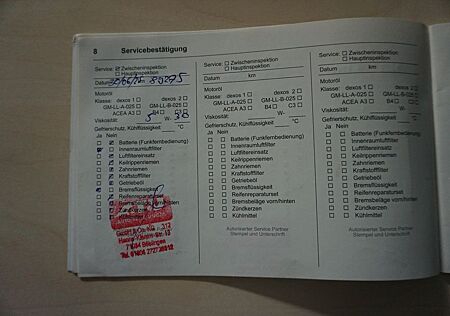 8 Servicebestätigung
Service: ☑ Zwischeninspektion
☐ Hauptinspektion
Datum
Motoröl
Klasse: dexos 1 ☐ dexos 2 ☐
GM-LL-A-025 ☐ GM-LL-B-025 ☐
ACEA A3 ☐ B4 ☐ C3 ☐
Viskosität: 5 W- 30
Gefrierschutz, Kühlflüssigkeit °C
Ja Nein
Batterie (Funkfernbedienung)
Innenraumluftfilter
Luftfiltereinsatz
Keilrippenriemen
Zahnriemen
Kraftstofffilter
Getriebeöl
Bremsflüssigkeit
Reifenreparaturset
Bremsbeläge vorn/hinten
Zündkerzen
Kühlmittel
GmbH & Co. KG
71034 Böblingen
Service: ☐ Zwischeninspektion
☐ Hauptinspektion
Datum km
Motoröl
Klasse: dexos 1 ☐ dexos 2 ☐
GM-LL-A-025 ☐ GM-LL-B-025 ☐
ACEA A3 ☐ B4 ☐ C3 ☐
Viskosität: W-
Gefrierschutz, Kühlflüssigkeit °C
Ja Nein
☐ ☐ Batterie (Funkfernbedienung)
☐ ☐ Innenraumluftfilter
☐ ☐ Luftfiltereinsatz
☐ ☐ Keilrippenriemen
☐ ☐ Zahnriemen
☐ ☐ Kraftstofffilter
☐ ☐ Getriebeöl
☐ ☐ Bremsflüssigkeit
☐ ☐ Reifenreparaturset
☐ ☐ Bremsbeläge vorn/hinten
☐ ☐ Zündkerzen
☐ ☐ Kühlmittel
Autorisierter Service Partner
Stempel und Unterschrift
Service: ☐ Zwischeninspektion
☐ Hauptinspektion
Datum km
Motoröl
Klasse: dexos 1 ☐ dexos 2 ☐
GM-LL-A-025 ☐ GM-LL-B-025 ☐
ACEA A3 ☐ B4 ☐ C3 ☐
Viskosität: W-
Gefrierschutz, Kühlflüssigkeit °C
Ja Nein
☐ ☐ Batterie (Funkfernbedienung)
☐ ☐ Innenraumluftfilter
☐ ☐ Luftfiltereinsatz
☐ ☐ Keilrippenriemen
☐ ☐ Zahnriemen
☐ ☐ Kraftstofffilter
☐ ☐ Getriebeöl
☐ ☐ Bremsflüssigkeit
☐ ☐ Reifenreparaturset
☐ ☐ Bremsbeläge vorn/hinten
☐ ☐ Zündkerzen
☐ ☐ Kühlmittel
Autorisierter Service Partner
Stempel und Unterschrift